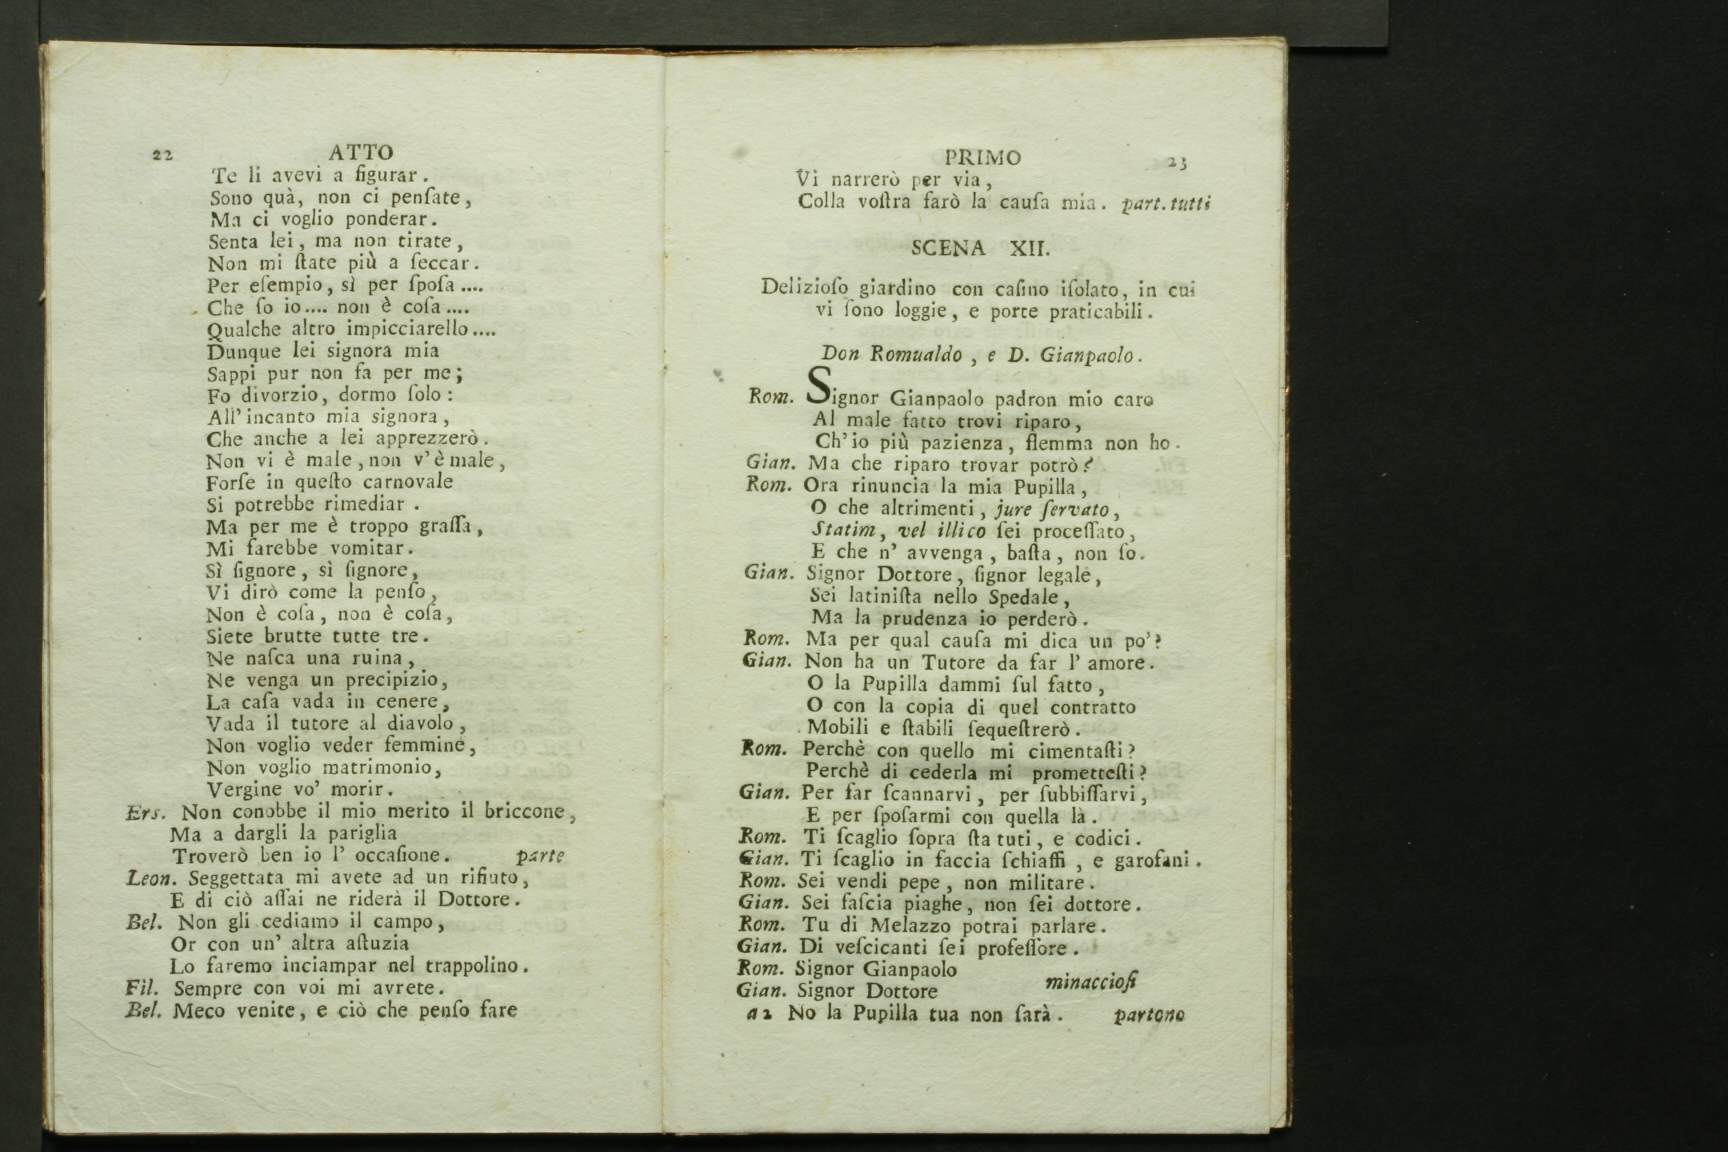 22 ATTO
Te li avevi a figurar.
Sono quà, non ci penſate,
Ma ci voglio ponderar.
Senta lei, ma non tirate,
Non mi ſtate più a ſeccar.
Per eſempio, sì per ſpoſa....
Che ſo io.... non è coſa....
Qualche altro impicciarello....
Dunque lei signora mia
Sappi pur non fa per me;
Fo divorzio, dormo ſolo:
All' incanto mia signora,
Che anche a lei apprezzerò.
Non vi è male, non v'è male,
Forſe in queſto carnovale
Si potrebbe rimediar.
Ma per me è troppo graſſa,
Mi farebbe vomitar.
Sì ſignore, sì ſignore,
Vi dirò come la penſo,
Non è coſa, non è coſa,
Siete brutte tutte tre.
Ne naſca una ruina,
Ne venga un precipizio,
La caſa vada in cenere,
Vada il tutore al diavolo,
Non voglio veder femmine,
Non voglio matrimonio,
Vergine vo' morir.
Ers. Non conobbe il mio merito il briccone,
Ma a dargli la pariglia
Troverò ben io l' occaſione. parte
Leon. Seggettata mi avete ad un rifiuto,
E di ciò aſſai ne riderà il Dottore.
Bel. Non gli cediamo il campo,
Or con un' altra aſtuzia
Lo faremo inciampar nel trappolino.
Fil. Sempre con voi mi avrete.
Bel. Meco venite, e ciò che penſo fare
PRIMO 23
Vi narrerò per via,
Colla voſtra farò la cauſa mia. part. tutti
SCENA XII.
Delizioſo giardino con caſino iſolato, in cui
vi ſono loggie, e porte praticabili.
Don Romualdo, e D. Gianpaolo.
Rom. Signor Gianpaolo padron mio caro
Al male fatto trovi riparo,
Ch'io più pazienza, flemma non ho.
Gian. Ma che riparo trovar potrò?
Rom. Ora rinuncia la mia Pupilla,
O che altrimenti, jure ſervato,
Statim, vel illico ſei proceſſato,
E che n' avvenga, baſta, non ſo.
Gian. Signor Dottore, ſignor legale,
Sei latiniſta nello Spedale,
Ma la prudenza io perderò.
Rom. Ma per qual cauſa mi dica un po'?
Gian. Non ha un Tutore da far l' amore.
O la Pupilla dammi ſul fatto,
O con la copia di quel contratto
Mobili e ſtabili ſequeſtrerò.
Rom. Perchè con quello mi cimentaſti?
Perchè di cederla mi prometteſti?
Gian. Per far ſcannarvi, per ſubbiſſarvi,
E per ſpoſarmi con quella là.
Rom. Ti ſcaglio ſopra ſtatuti, e codici.
Gian. Ti ſcaglio in faccia ſchiaffi, e garofani.
Rom. Sei vendi pepe, non militare.
Gian. Sei faſcia piaghe, non ſei dottore.
Rom. Tu di Melazzo potrai parlare.
Gian. Di veſcicanti ſei profeſſore.
Rom. Signor Gianpaolo
Gian. Signor Dottore minaccioſi
a 2 No la Pupilla tua non ſarà. partono